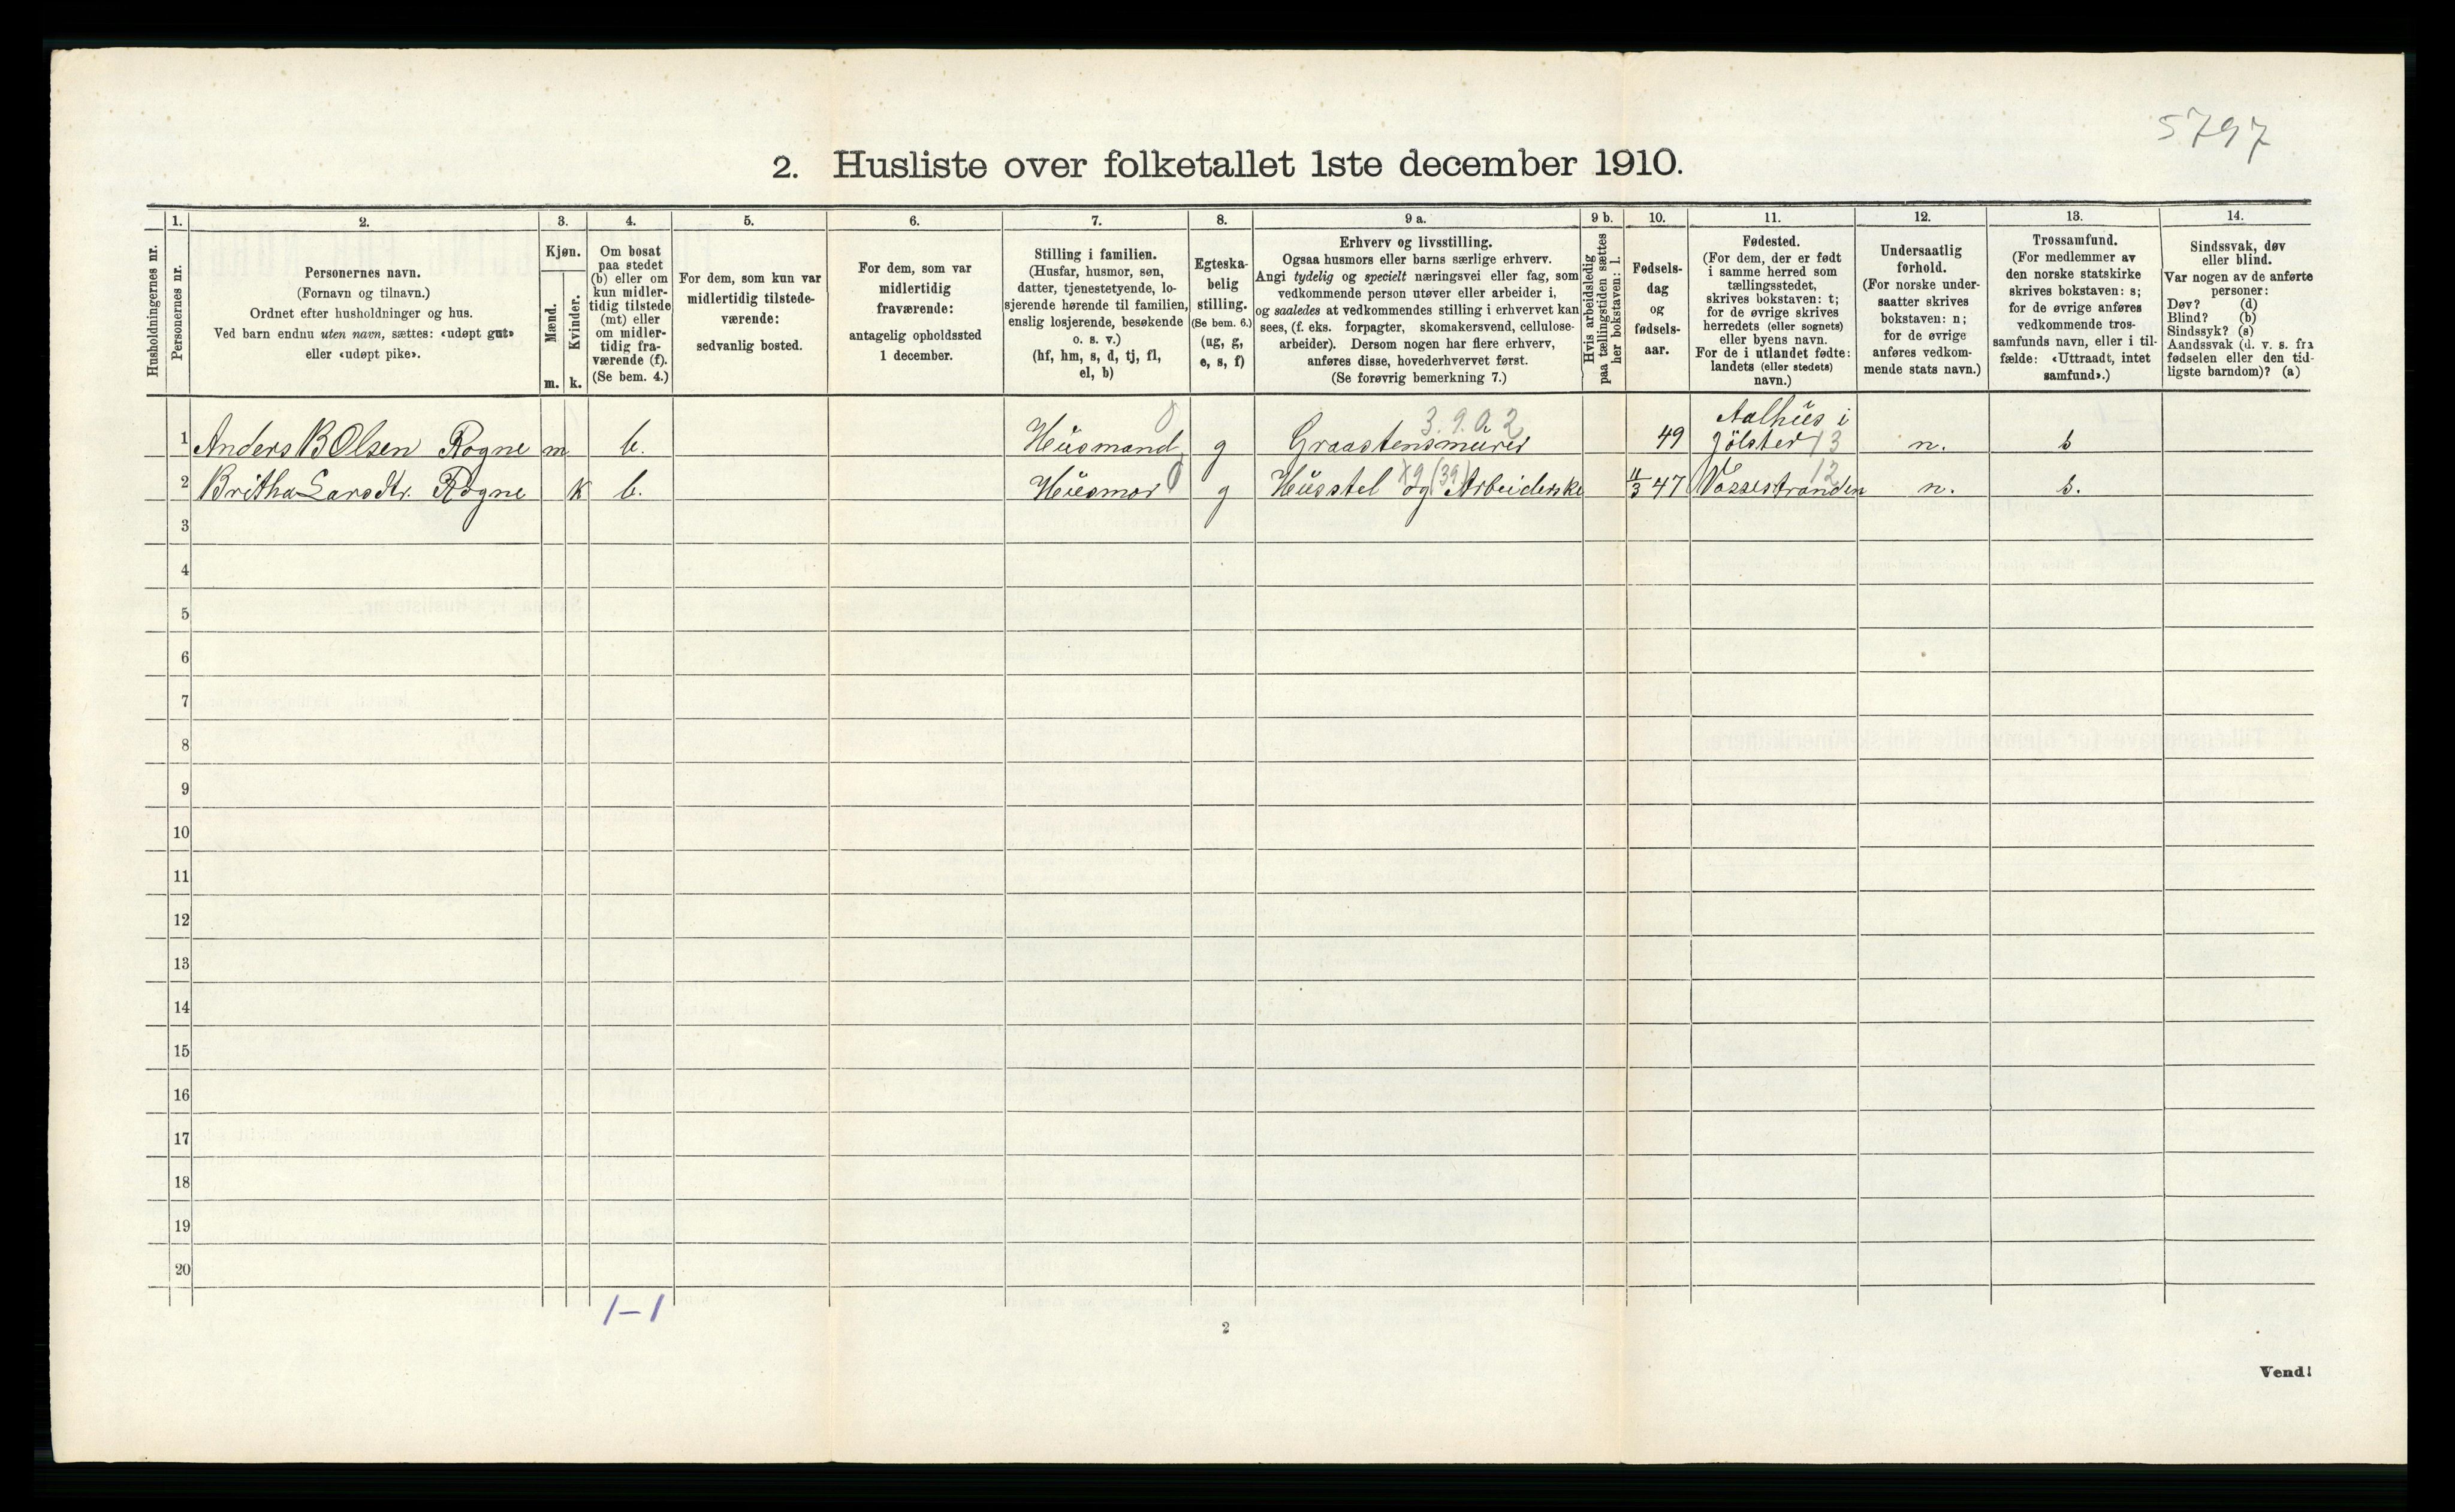 5797
2. Husliste over folketallet 1ste december 1910.
Husholdningernes nr.
1.
Personernes nr.
2.
Personernes navn.
(Fornavn og tilnavn.)
Ordnet efter husholdninger og hus.
Ved barn endnu uten navn, sættes: «udøpt gut»
eller «udøpt pike».
3.
Kjøn.
Mænd.
Kvinder.
m. k.
4.
Om bosat
paa stedet
(b) eller om
kun midler-
tidig tilstede
(mt) eller
om midler-
tidig fra-
værende (f).
(Se bem. 4.)
5.
For dem, som kun var
midlertidig tilstede-
værende:
sedvanlig bosted.
6.
For dem, som var
midlertidig
fraværende:
antagelig opholdssted
1 december.
7.
Stilling i familien.
(Husfar, husmor, søn,
datter, tjenestetyende, lo-
sjerende hørende til familien,
enslig losjerende, besøkende
o. s. v.)
(hf, hm, s, d, tj, fl,
el, b)
8.
Egteska-
belig
stilling.
(Se bem. 6.)
(ug, g,
e, s, f)
9 a.
Erhverv og livsstilling.
Ogsaa husmors eller barns særlige erhverv.
Angi tydelig og specielt næringsvei eller fag, som
vedkommende person utøver eller arbeider i,
og saaledes at vedkommendes stilling i erhvervet kan
sees, (f. eks. forpagter, skomakersvend, cellulose-
arbeider). Dersom nogen har flere erhverv,
anføres disse, hovederhvervet først.
(Se forøvrig bemerkning 7.)
9 b.
Hvis arbeidsledig
paa tællingstiden sættes
her bokstaven: l.
10.
Fødsels-
dag
og
fødsels-
aar.
11.
Fødested.
(For dem, der er født
i samme herred som
tællingsstedet,
skrives bokstaven: t;
for de øvrige skrives
herredets (eller sognets)
eller byens navn.
For de i utlandet fødte:
landets (eller stedets)
navn.)
12.
Undersaatlig
forhold.
(For norske under-
saatter skrives
bokstaven: n;
for de øvrige
anføres vedkom-
mende stats navn.)
13.
Trossamfund.
(For medlemmer av
den norske statskirke
skrives bokstaven: s;
for de øvrige anføres
vedkommende tros-
samfunds navn, eller i til-
fælde: «Uttraadt, intet
samfund».)
14.
Sindssvak, døv
eller blind.
Var nogen av de anførte
personer:
Døv? (d)
Blind? (b)
Sindssyk? (s)
Aandssvak (d. v. s. fra
fødselen eller den tid-
ligste barndom)? (a)
0 3.9.a.2 Aalhüs i
1 Anders B Olsen Rogne m b. Hüsmand g Graastensmürer 49 Jölster 13 n. s
0 X9 (39) 12
2 Britha Larsdtr. Rogne k b. Hüsmor g Hüsstel og Arbeiderske 11/3 47 Vossestranden n. s.
3
4
5
6
7
8
9
10
11
12
13
14
15
16
17
18
19
20
1–1
2
Vend!